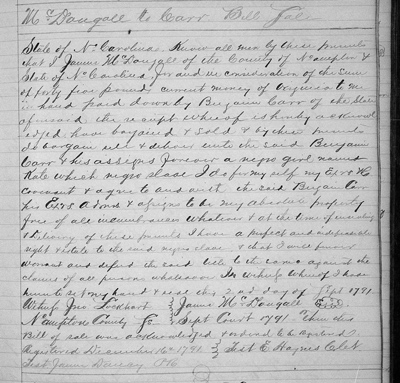 McDougall to Carr Bill Sale
State of No Carolina Know all men by these presents
that I James McDougall of the County of No ampton &
State of No Carolina for and in consideration of the Sum
of forty five pounds current money of Virginia to me
in hand paid down by Benjamin Carr of the State
aforesaid the receipt whereof is hereby acknowl
edged have bargained & Sold & by these presents
do bargain sell & deliver unto the said Benjamin
Carr & his assigns forever a negro girl named
Kate which negro slave I do for my self my Exrs &
covenant & agree to and with the said Benjamin Carr
his Exrs Admrs & assigns to be my absolute property
free of all incumbrances whatever & at the time of
& delivery of these presents I have a perfect and indefeasible
right & estate to the said negro slave & that I will forever
warrant and defend the said title to the same against the
claims of all persons whatsoever In witness whereof I have
hereunto set my hand & seal this 2nd day of Sept 1791
Witness Jno Lockhart } James McDougall Seal
No ampton County Sc } Sept Court 1791 Then this
Bill of sale was acknowledged & ordered to be
Registered December 16th 1791 } Test E Haynes Clk
Test James PR